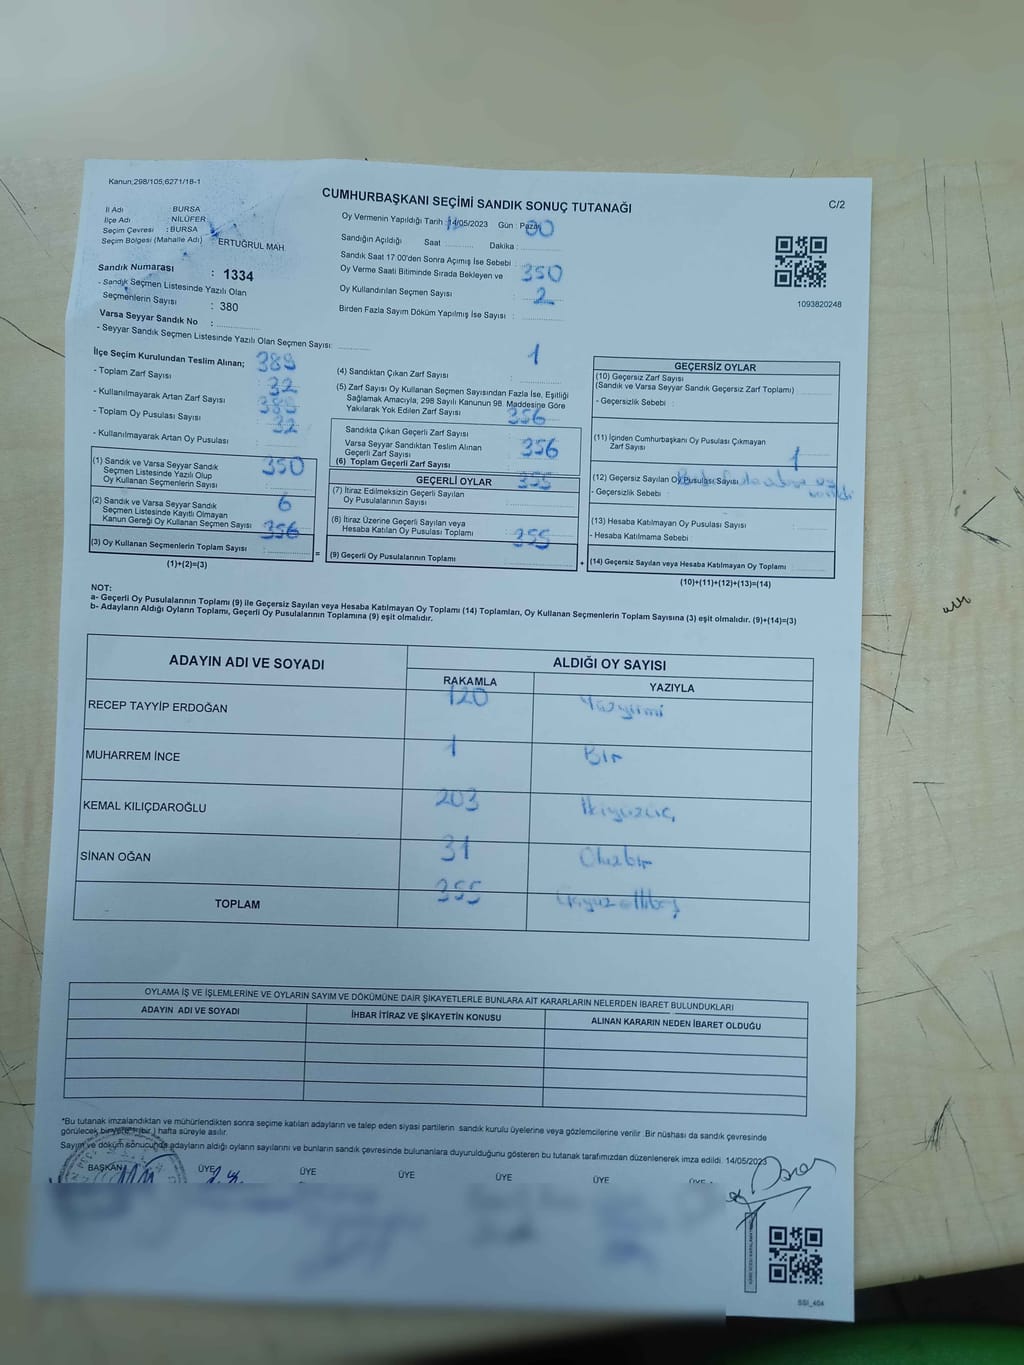 Kanun;298/105,6271/18-1
CUMHURBAŞKANI SEÇİMİ SANDIK SONUÇ TUTANAĞI
C/2
İl Adı : BURSA
İlçe Adı : NİLÜFER
Seçim Çevresi : BURSA
Seçim Bölgesi (Mahalle Adı) : ERTUĞRUL MAH.
Sandık Numarası : 1334
- Sandık Seçmen Listesinde Yazılı Olan
Seçmenlerin Sayısı : 380
Varsa Seyyar Sandık No :
- Seyyar Sandık Seçmen Listesinde Yazılı Olan Seçmen Sayısı:
Oy Vermenin Yapıldığı Tarih : 14/05/2023 Gün : Pazar
00
Sandığın Açıldığı Saat Dakika :
Sandık Saat 17:00'den Sonra Açımış İse Sebebi :
Oy Verme Saati Bitiminde Sırada Bekleyen ve
350
Oy Kullandırılan Seçmen Sayısı :
2
Birden Fazla Sayım Döküm Yapılmış İse Sayısı :
1093820248
İlçe Seçim Kurulundan Teslim Alınan;
389
- Toplam Zarf Sayısı :
32
- Kullanılmayarak Artan Zarf Sayısı :
389
- Toplam Oy Pusulası Sayısı :
32
- Kullanılmayarak Artan Oy Pusulası :
(1) Sandık ve Varsa Seyyar Sandık
Seçmen Listesinde Yazılı Olup
Oy Kullanan Seçmenlerin Sayısı :
350
(2) Sandık ve Varsa Seyyar Sandık
Seçmen Listesinde Kayıtlı Olmayan
Kanun Gereği Oy Kullanan Seçmen Sayısı :
6
356
(3) Oy Kullanan Seçmenlerin Toplam Sayısı :
(1)+(2)=(3)
=
1
(4) Sandıktan Çıkan Zarf Sayısı :
(5) Zarf Sayısı Oy Kullanan Seçmen Sayısından Fazla İse, Eşitliği
Sağlamak Amacıyla; 298 Sayılı Kanunun 98. Maddesine Göre
Yakılarak Yok Edilen Zarf Sayısı :
356
Sandıkta Çıkan Geçerli Zarf Sayısı :
Varsa Seyyar Sandıktan Teslim Alınan
Geçerli Zarf Sayısı :
356
(6) Toplam Geçerli Zarf Sayısı :
GEÇERLİ OYLAR
355
(7) İtiraz Edilmeksizin Geçerli Sayılan
Oy Pusulalarının Sayısı :
(8) İtiraz Üzerine Geçerli Sayılan veya
Hesaba Katılan Oy Pusulası Toplamı :
355
(9) Geçerli Oy Pusulalarının Toplamı :
+
GEÇERSİZ OYLAR
(10) Geçersiz Zarf Sayısı
(Sandık ve Varsa Seyyar Sandık Geçersiz Zarf Toplamı)
- Geçersizlik Sebebi :
(11) İçinden Cumhurbaşkanı Oy Pusulası Çıkmayan
Zarf Sayısı :
1
(12) Geçersiz Sayılan Oy Pusulası Sayısı
- Geçersizlik Sebebi :
(13) Hesaba Katılmayan Oy Pusulası Sayısı
- Hesaba Katılmama Sebebi :
(14) Geçersiz Sayılan veya Hesaba Katılmayan Oy Toplamı :
(10)+(11)+(12)+(13)=(14)
NOT:
a- Geçerli Oy Pusulalarının Toplamı (9) ile Geçersiz Sayılan veya Hesaba Katılmayan Oy Toplamı (14) Toplamları, Oy Kullanan Seçmenlerin Toplam Sayısına (3) eşit olmalıdır. (9)+(14)=(3)
b- Adayların Aldığı Oyların Toplamı, Geçerli Oy Pusulalarının Toplamına (9) eşit olmalıdır.
ADAYIN ADI VE SOYADI ALDIĞI OY SAYISI
RAKAMLA YAZIYLA
RECEP TAYYİP ERDOĞAN 120 Yüzyirmi
MUHARREM İNCE 1 Bir
KEMAL KILIÇDAROĞLU 203 İkiyüzüç
SİNAN OĞAN 31 Otuzbir
TOPLAM 355 Üçyüzellibeş
OYLAMA İŞ VE İŞLEMLERİNE VE OYLARIN SAYIM VE DÖKÜMÜNE DAİR ŞİKAYETLERLE BUNLARA AİT KARARLARIN NELERDEN İBARET BULUNDUKLARI
ADAYIN ADI VE SOYADI İHBAR İTİRAZ VE ŞİKAYETİN KONUSU ALINAN KARARIN NEDEN İBARET OLDUĞU
*Bu tutanak imzalandıktan ve mühürlendikten sonra seçime katılan adayların ve talep eden siyasi partilerin sandık kurulu üyelerine veya gözlemcilerine verilir. Bir nüshası da sandık çevresinde
görülecek bir yere 1 (bir ) hafta süreyle asılır.
Sayım ve döküm sonucunda adayların aldığı oyların sayılarını ve bunların sandık çevresinde bulunanlara duyurulduğunu gösteren bu tutanak tarafımızdan düzenlenerek imza edildi. 14/05/2023
BAŞKAN ÜYE ÜYE ÜYE ÜYE ÜYE ÜYE
SSI_404